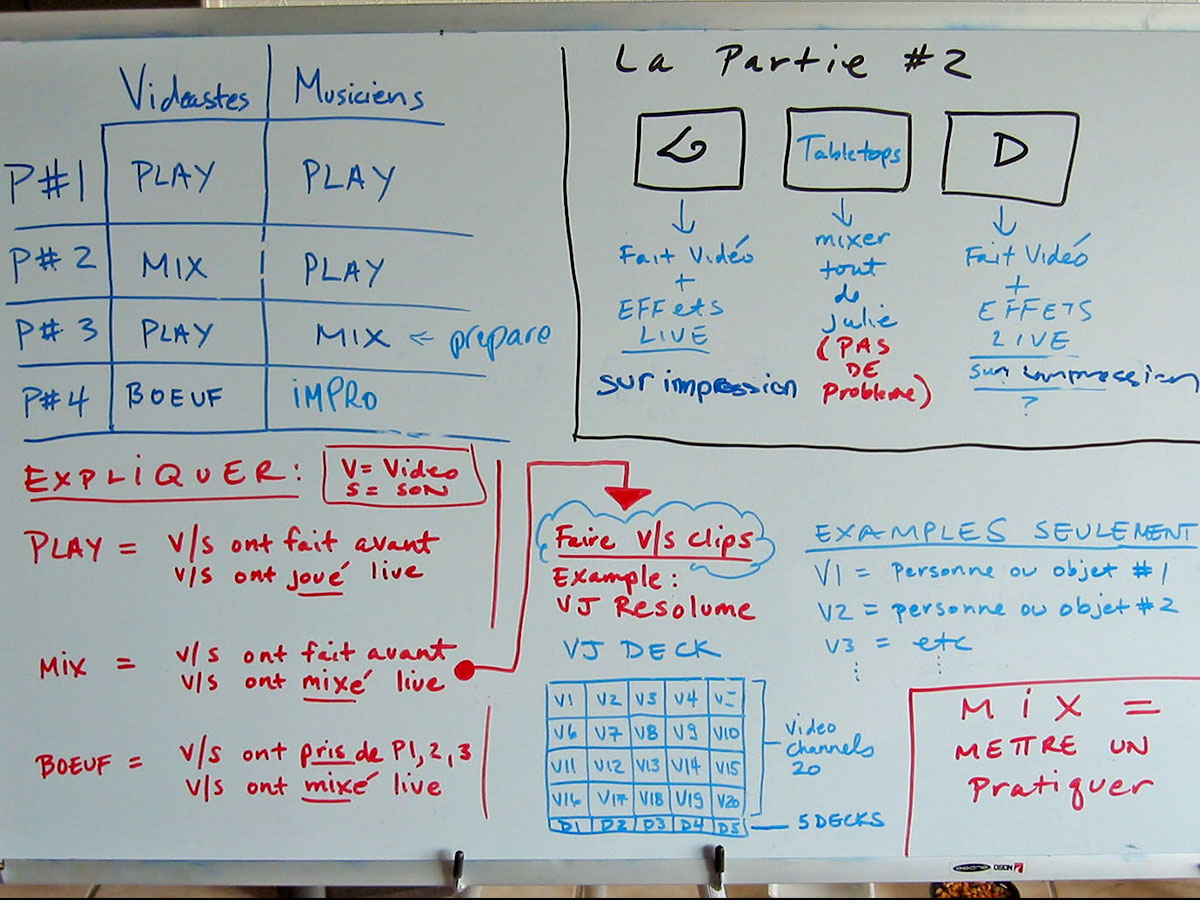 Videastes Musiciens
P#1 PLAY PLAY
P#2 MIX PLAY
P#3 PLAY MIX ← prepare
P#4 BOEUF iMPRO
La Partie #2
G
Fait Vidéo
+
EFFets
LIVE
sur impression
Tabletops
mixer
tout
de
Julie
(PAS
DE
Problème)
D
Fait Vidéo
+
EFFETS
LIVE
sur impression
?
EXPLiQUER:
V= Video
S= SON
PLAY = V/S ont fait avant
V/S ont joué live
Mix = V/S ont fait avant
V/S ont mixé live
BOEUF = V/S ont pris de P1, 2, 3
V/S ont mixé live
Faire V/S clips
Example:
VJ Resolume
VJ DECK
V1 V2 V3 V4 V5
V6 V7 V8 V9 V10
V11 V12 V13 V14 V15
V16 V17 V18 V19 V20
D1 D2 D3 D4 D5
Video
channels
20
5 DECKS
EXAMPLES SEULEMENT
V1 = Personne ou objet #1
V2 = personne ou objet #2
V3 = etc
MiX =
METTRE UN
Pratiquer